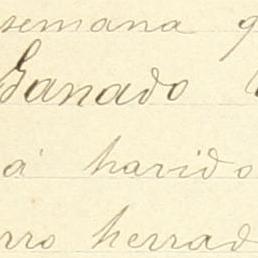 semana q
Ganado
á harido
rro herrad